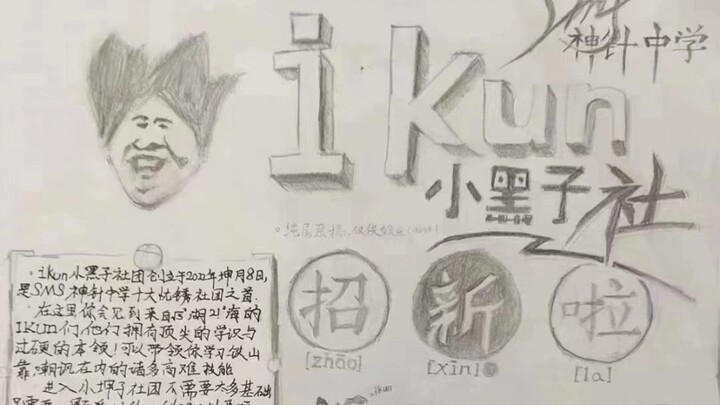 SMS
神针中学
ikun
小黑子社
。纯属恶搞,
招 新 啦
[zhāo] [xīn] [la]
。ikun小黑子社团创立于2022年坤月8日,
是SMS神针中学十大忧锈社团之首.
在这里你会见到来自5湖21°海的
IKUN们他们拥有顶尖的学识与
过硬的本领!可以带领你学习铁山
靠.嘲讽在内的诸多高难技能
进入小坤子社团不需要太多基础
ikun